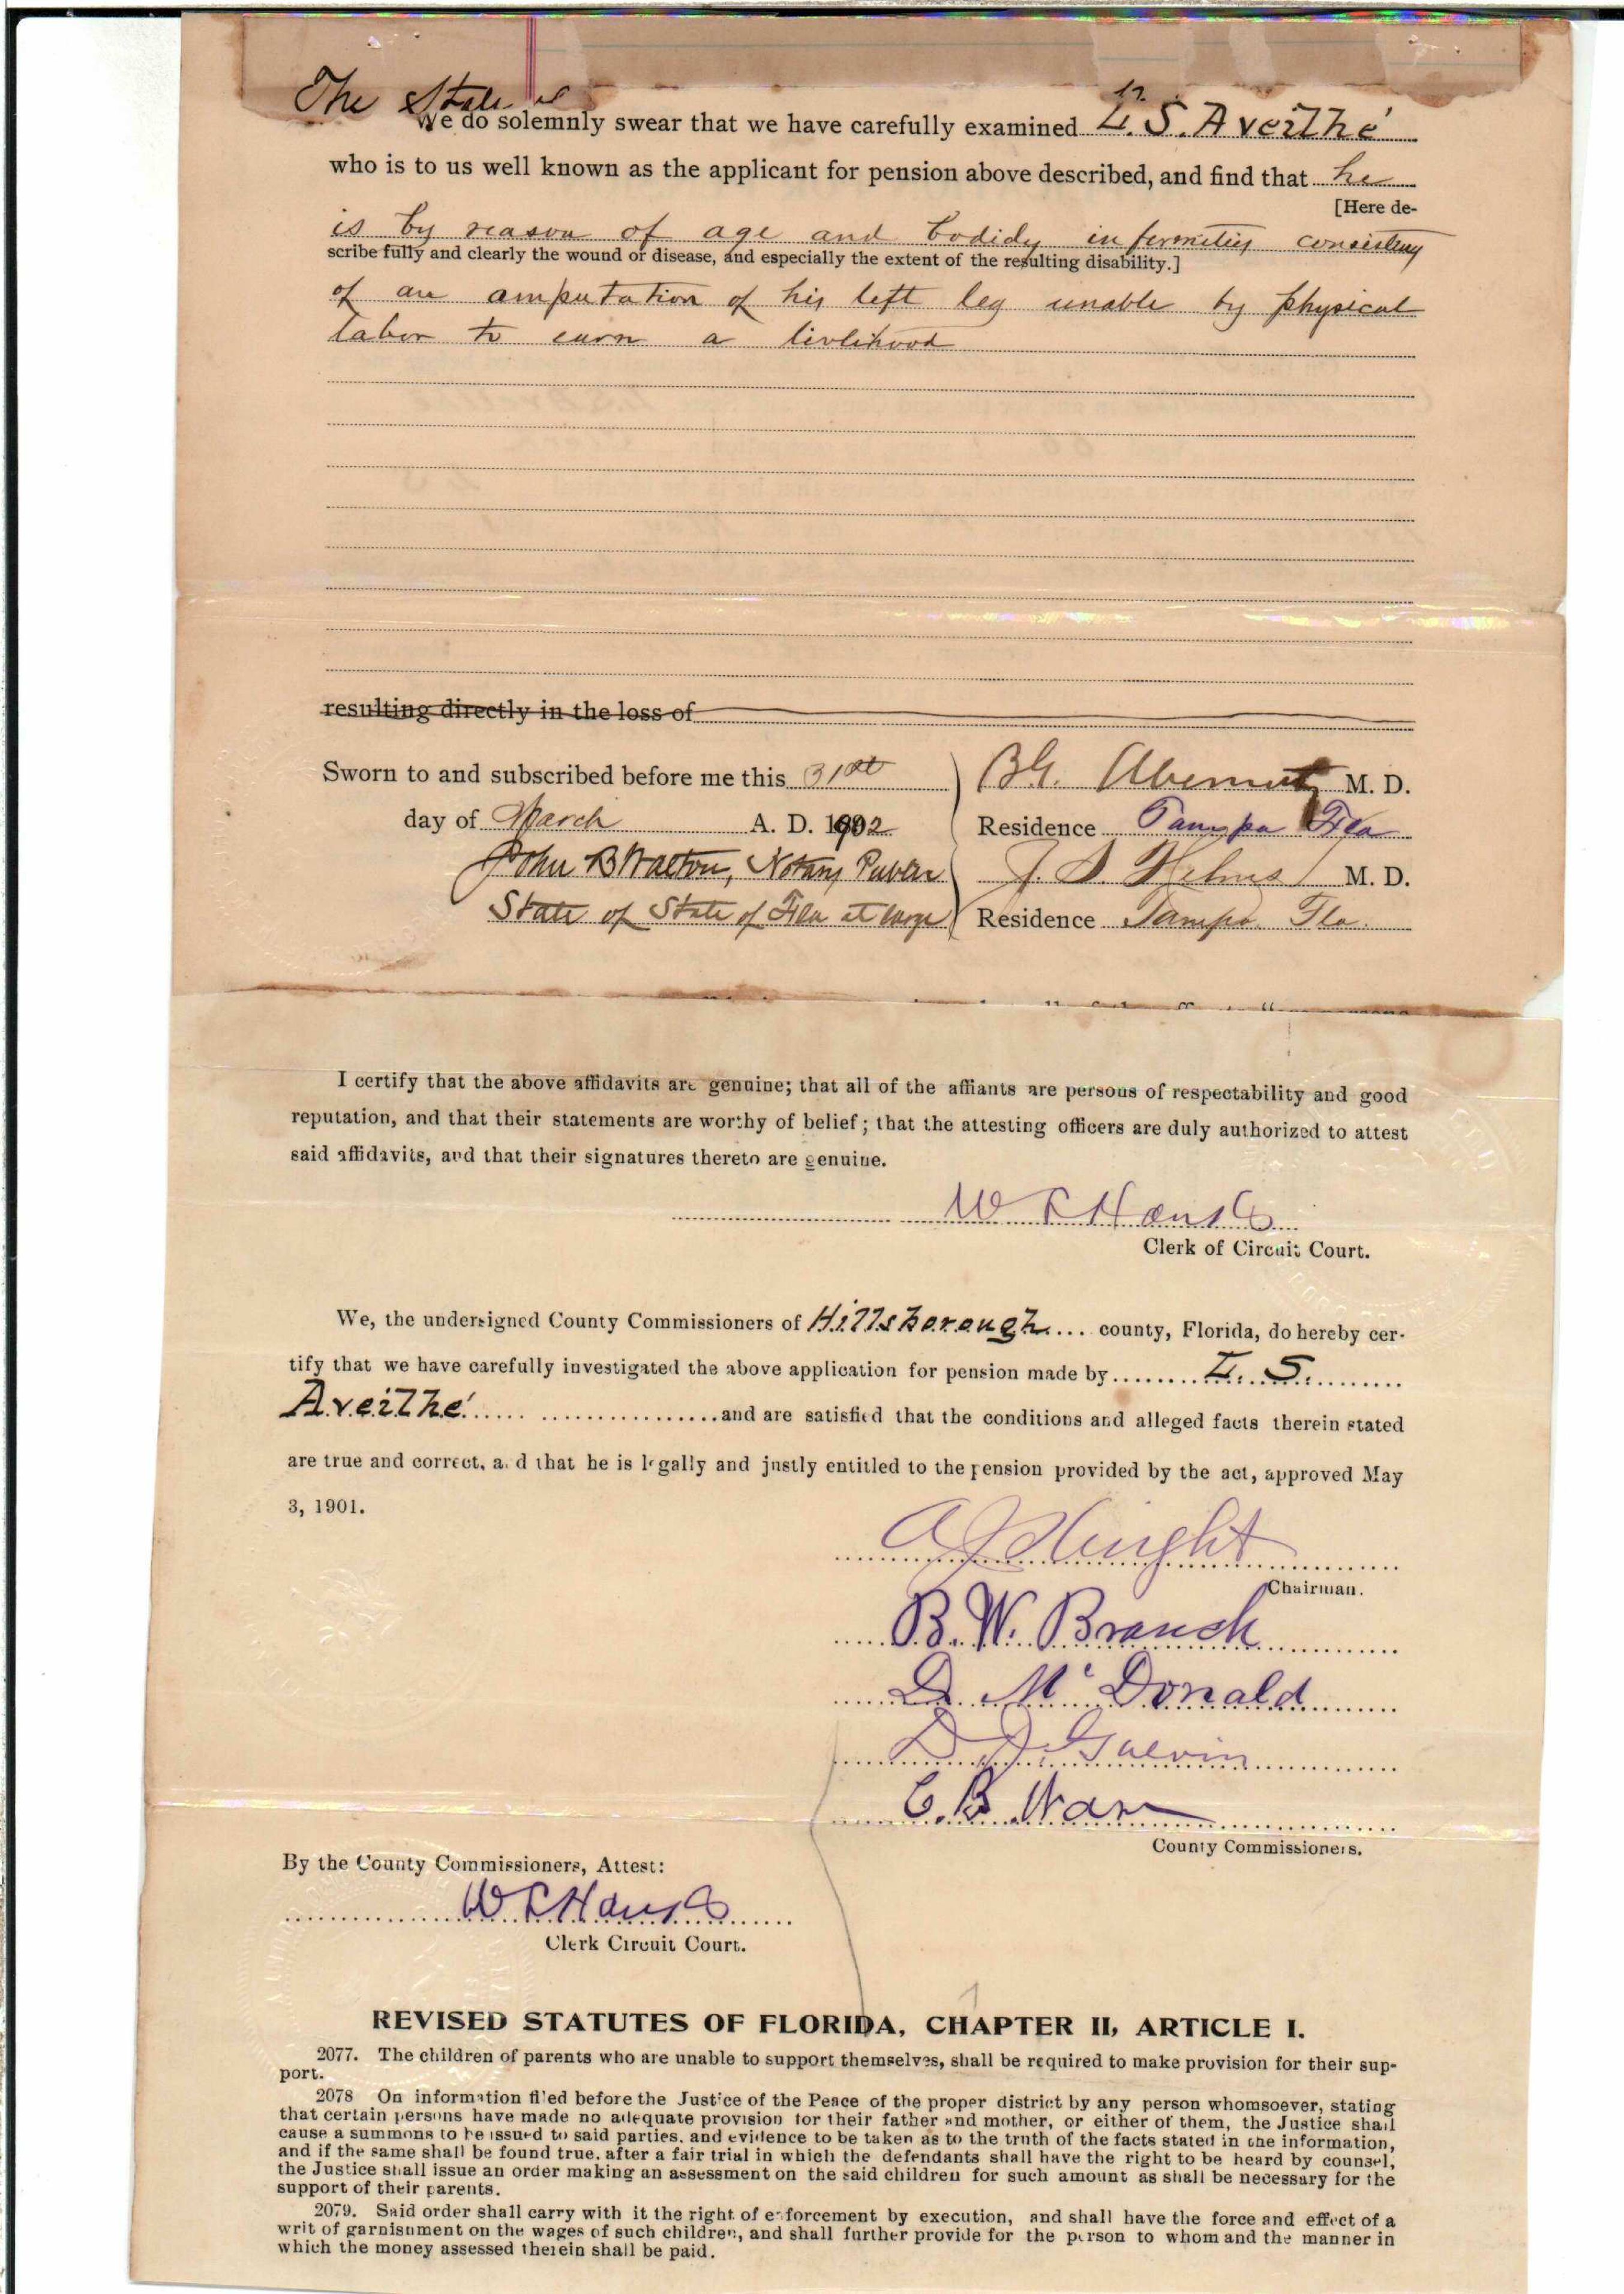 The State of
We do solemnly swear that we have carefully examined L. S. Averlhé
who is to us well known as the applicant for pension above described, and find that he
[Here de-
is by reason of age and bodidy infirmities consisting
scribe fully and clearly the wound or disease, and especially the extent of the resulting disability.]
of an amputation of his left leg unable by physical
labor to earn a livlihood
resulting directly in the loss of
Sworn to and subscribed before me this 31st
day of March A. D. 1902
John B Walton, Notary Public
State of State of Fla at large
M. D.
Residence Tampa Fla
J. S. Helms M. D.
Residence Tampa Fla.
I certify that the above affidavits are genuine; that all of the affiants are persons of respectability and good
reputation, and that their statements are worthy of belief; that the attesting officers are duly authorized to attest
said affidavits, and that their signatures thereto are genuine.
Clerk of Circuit Court.
We, the undersigned County Commissioners of Hillsborough county, Florida, do hereby cer-
tify that we have carefully investigated the above application for pension made by L. S.
Averlhé and are satisfied that the conditions and alleged facts therein stated
are true and correct, and that he is legally and justly entitled to the pension provided by the act, approved May
3, 1901.
Chairman.
B. W. Branch
D. McDonald
C. B.
County Commissioners.
By the County Commissioners, Attest:
Clerk Circuit Court.
REVISED STATUTES OF FLORIDA, CHAPTER II, ARTICLE I.
2077. The children of parents who are unable to support themselves, shall be required to make provision for their sup-
port.
2078 On information filed before the Justice of the Peace of the proper district by any person whomsoever, stating
that certain persons have made no adequate provision for their father and mother, or either of them, the Justice shall
cause a summons to be issued to said parties. and evidence to be taken as to the truth of the facts stated in the information,
and if the same shall be found true. after a fair trial in which the defendants shall have the right to be heard by counsel,
the Justice shall issue an order making an assessment on the said children for such amount as shall be necessary for the
support of their parents.
2079. Said order shall carry with it the right of enforcement by execution, and shall have the force and effect of a
writ of garnishment on the wages of such children, and shall further provide for the person to whom and the manner in
which the money assessed therein shall be paid.